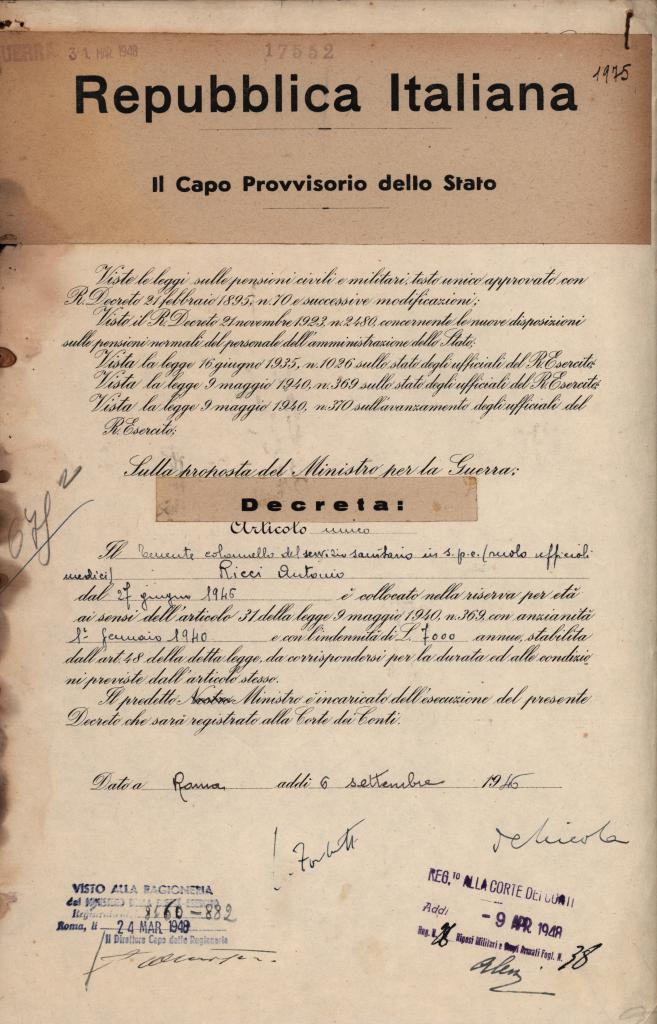 31 MAR 1948
17552
1975
Repubblica Italiana
Il Capo Provvisorio dello Stato
Viste le leggi sulle pensioni civili e militari, testo unico approvato con
R. Decreto 21 febbraio 1895, n. 70 e successive modificazioni;
Visto il R. Decreto 21 novembre 1923, n. 2480, concernente le nuove disposizioni
sulle pensioni normali del personale dell'amministrazione dello Stato;
Vista la legge 16 giugno 1935, n. 1026 sullo stato degli ufficiali del R. Esercito;
Vista la legge 9 maggio 1940, n. 369 sullo stato degli ufficiali del R. Esercito;
Vista la legge 9 maggio 1940, n. 370 sull'avanzamento degli ufficiali del
R. Esercito;
Sulla proposta del Ministro per la Guerra;
Decreta:
Articolo unico
Il tenente colonnello del servizio sanitario in s.p.e. (ruolo ufficiali
medici) Ricci Antonio
dal 27 giugno 1946 è collocato nella riserva per età
ai sensi dell'articolo 31 della legge 9 maggio 1940, n. 369, con anzianità
1° Gennaio 1940 e con l'indennità di L. 7000 annue, stabilita
dall'art. 48 della detta legge, da corrispondersi per la durata ed alle condizio
ni previste dall'articolo stesso.
Il predetto Nostro Ministro è incaricato dell'esecuzione del presente
Decreto che sarà registrato alla Corte dei Conti.
Dato a Roma addì 6 settembre 1946
De Nicola
VISTO ALLA RAGIONERIA
del MINISTERO
882
Roma, li 24 MAR 1948
Il Direttore Capo della Ragioneria
REG.TO ALLA CORTE DEI CONTI
Addì - 9 APR 1948
Reg. N. Militari e Fogl. N. 38